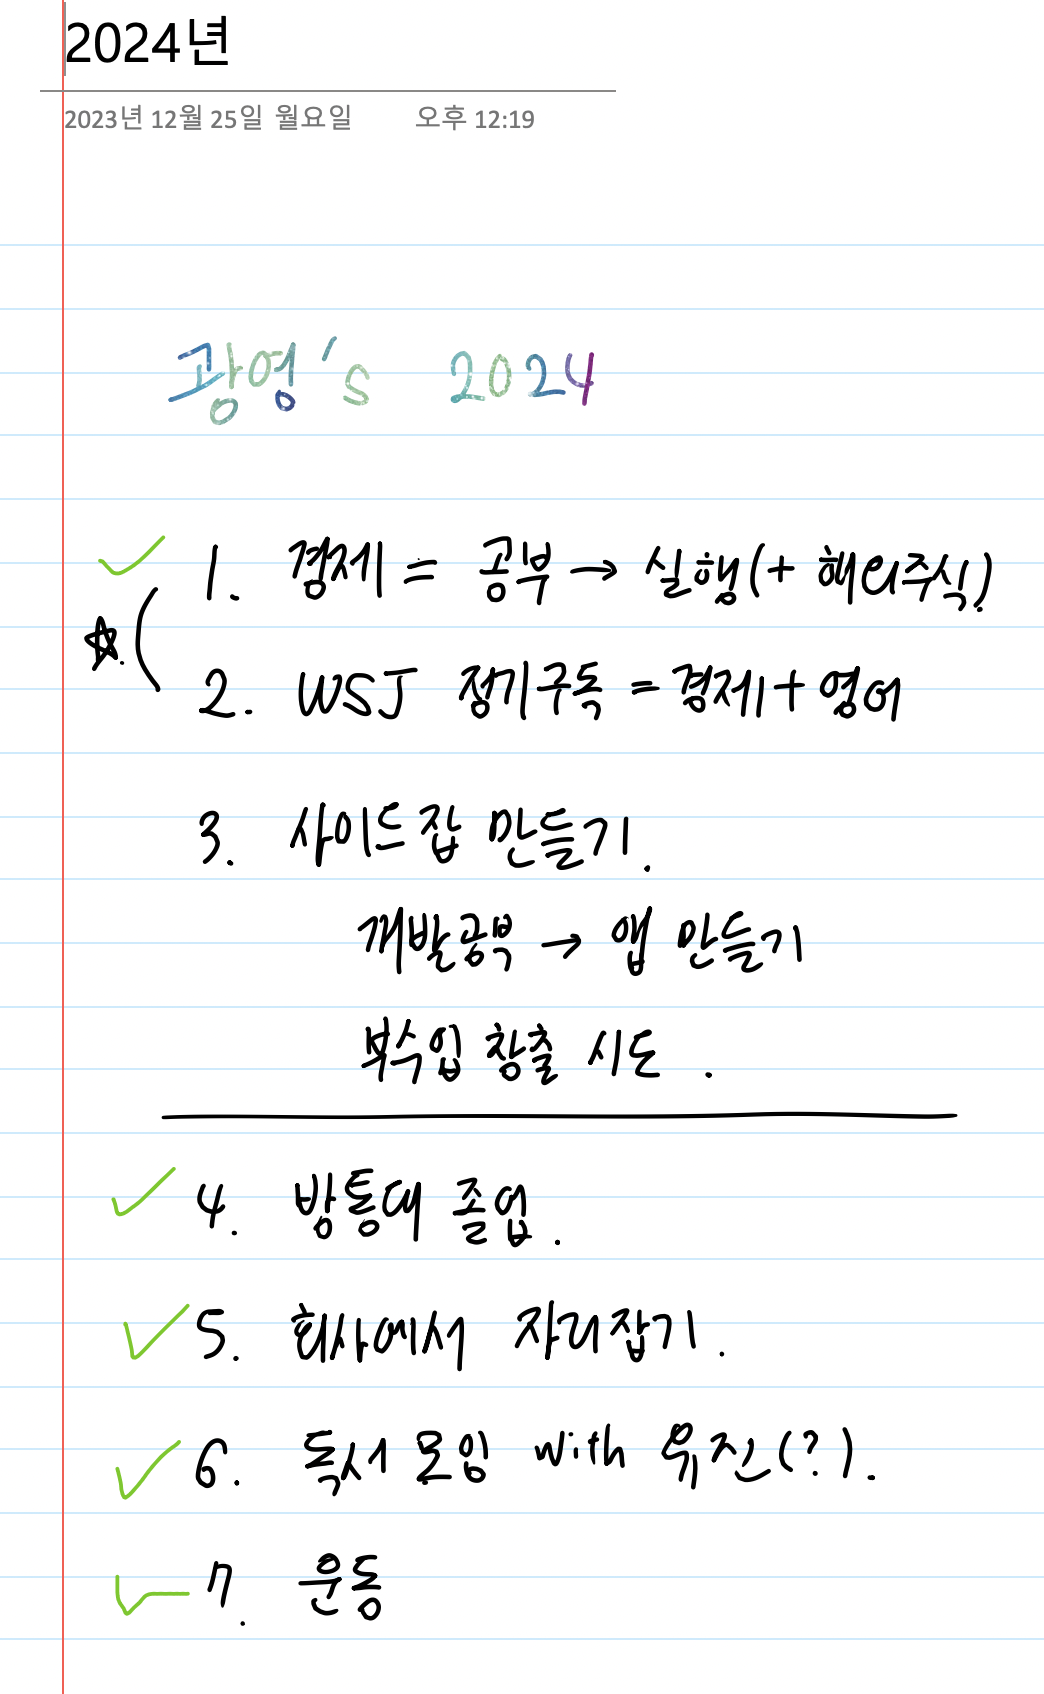 2024년
2023년 12월 25일 월요일 오후 12:19
광영's 2024
1. 경제 = 공부 → 실행(+ 해외주식).
2. WSJ 정기구독 = 경제 + 영어
3. 사이드잡 만들기.
개발공부 → 앱 만들기
부수입 창출 시도.
4. 방통대 졸업.
5. 회사에서 자리잡기.
6. 독서모임 with 유진(?).
7. 운동